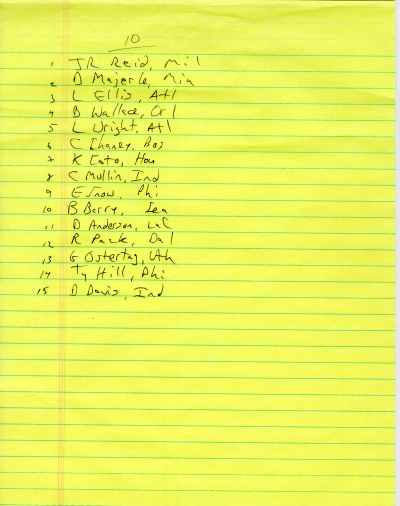 10
1 JR Reid, Mil
2 D Majerle, Mia
3 L Ellis, Atl
4 B Wallace, Orl
5 L Wright, Atl
6 C Chaney, Bos
7 K Cato, Hou
8 C Mullin, Ind
9 E Snow, Phi
10 B Barry, Sea
11 D Anderson, LaC
12 R Pack, Dal
13 G Ostertag, Uth
14 Ty Hill, Phi
15 D Davis, Ind